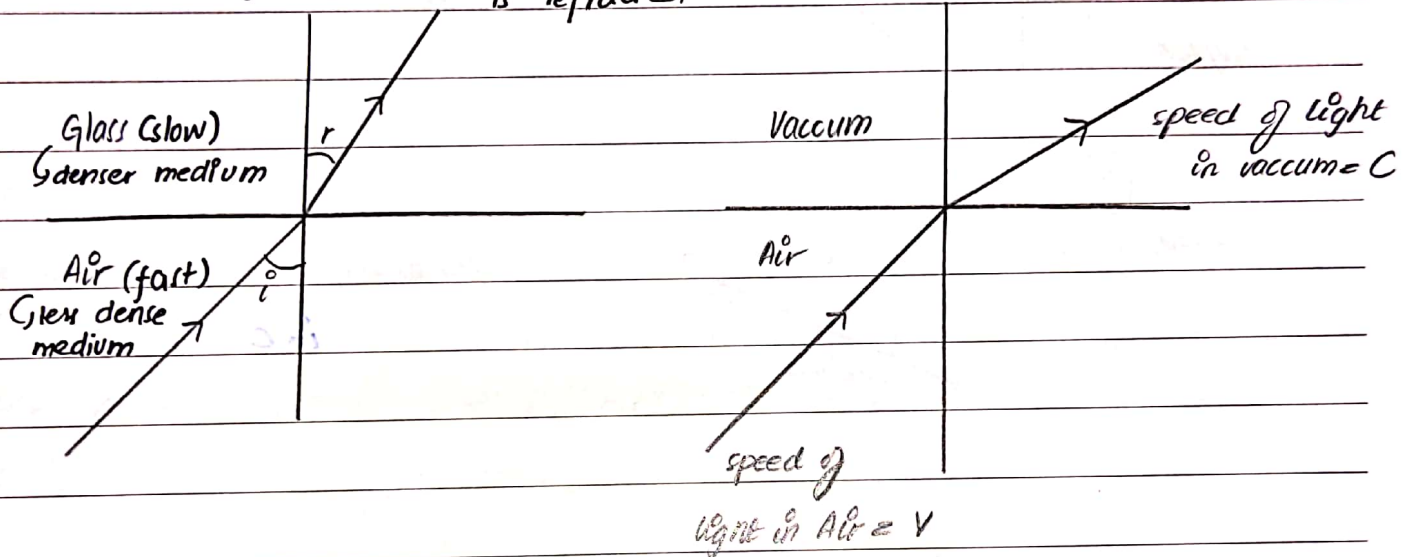 is refrac
Glass (slow)
denser medium
r
Air (fast)
less dense
medium
i
Vaccum
speed of light
in vaccum = C
Air
speed of
light in Air = V